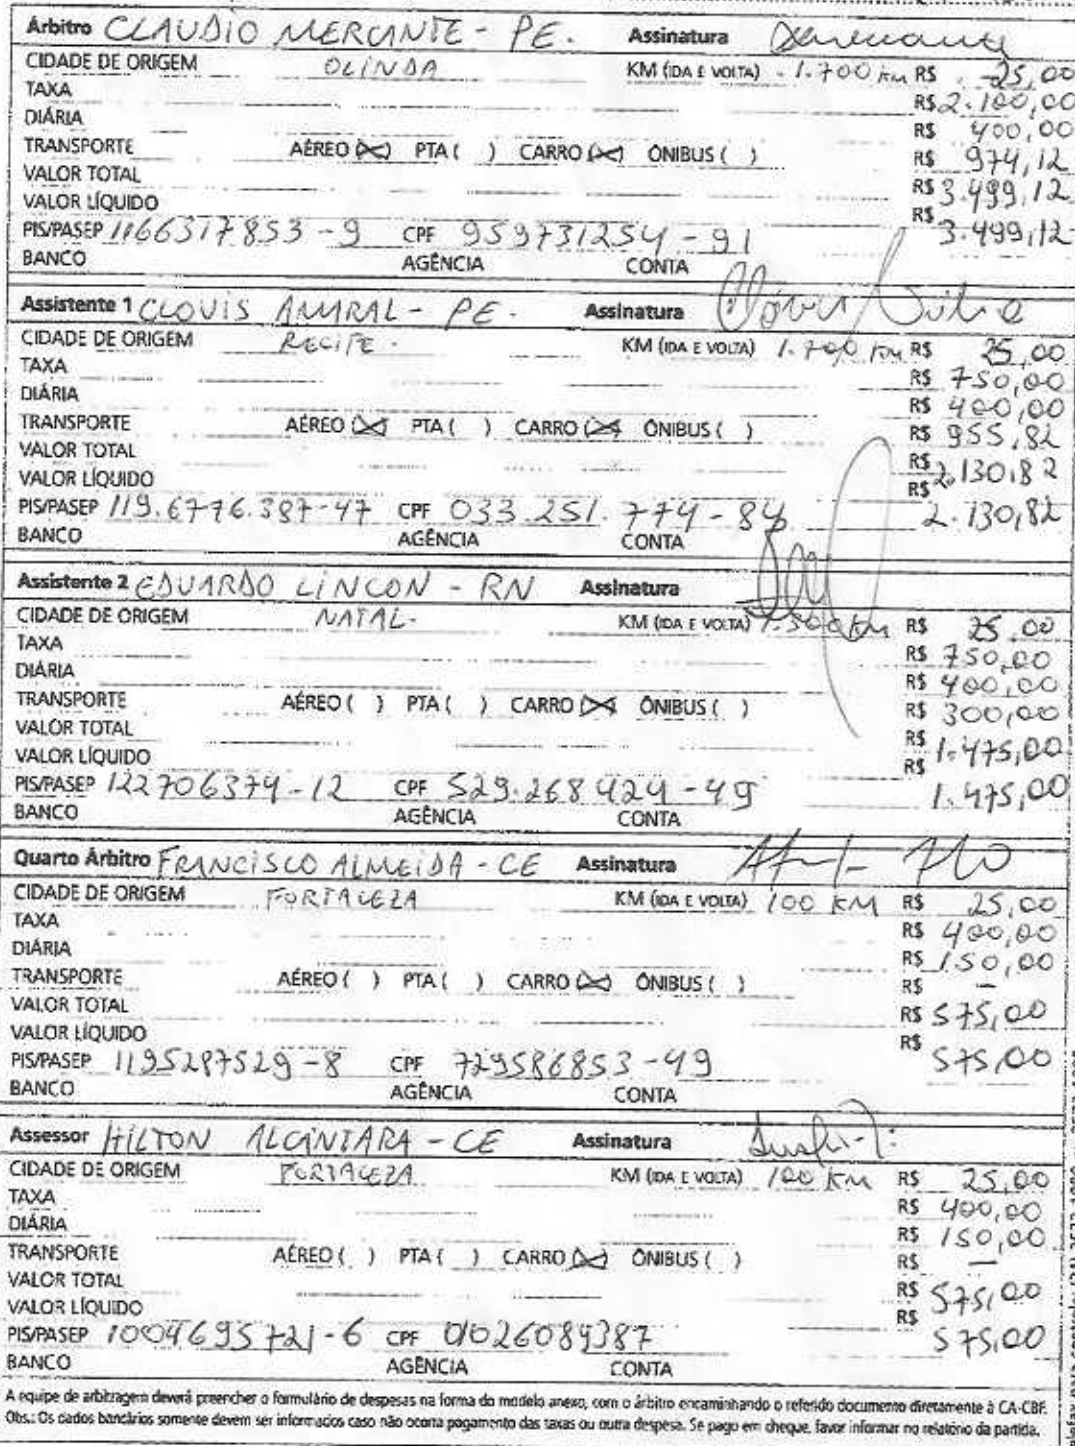 Árbitro CLAUDIO MERCANTE - PE. Assinatura
CIDADE DE ORIGEM OLINDA KM (IDA E VOLTA) 1.700 Km R$ 25,00
TAXA R$ 2.100,00
DIÁRIA R$ 400,00
TRANSPORTE AÉREO (X) PTA ( ) CARRO (X) ÔNIBUS ( ) R$ 974,12
VALOR TOTAL R$ 3.499,12
VALOR LÍQUIDO R$ 3.499,12
PIS/PASEP 1166317853-9 CPF 959731254-91
BANCO AGÊNCIA CONTA
Assistente 1 CLOVIS AMARAL - PE. Assinatura
CIDADE DE ORIGEM RECIFE. KM (IDA E VOLTA) 1.700 Km R$ 25,00
TAXA R$ 750,00
DIÁRIA R$ 400,00
TRANSPORTE AÉREO (X) PTA ( ) CARRO (X) ÔNIBUS ( ) R$ 955,82
VALOR TOTAL R$ 2.130,82
VALOR LÍQUIDO R$ 2.130,82
PIS/PASEP 119.6776.387-47 CPF 033.251.774-84
BANCO AGÊNCIA CONTA
Assistente 2 EDUARDO LINCON - RN Assinatura
CIDADE DE ORIGEM NATAL- KM (IDA E VOLTA) 1.500 Km R$ 25,00
TAXA R$ 750,00
DIÁRIA R$ 400,00
TRANSPORTE AÉREO ( ) PTA ( ) CARRO (X) ÔNIBUS ( ) R$ 300,00
VALOR TOTAL R$ 1.475,00
VALOR LÍQUIDO R$ 1.475,00
PIS/PASEP 122706374-12 CPF 529.268424-49
BANCO AGÊNCIA CONTA
Quarto Árbitro FRANCISCO ALMEIDA - CE Assinatura
CIDADE DE ORIGEM FORTALEZA KM (IDA E VOLTA) 100 KM R$ 25,00
TAXA R$ 400,00
DIÁRIA R$ 150,00
TRANSPORTE AÉREO ( ) PTA ( ) CARRO (X) ÔNIBUS ( ) R$ —
VALOR TOTAL R$ 575,00
VALOR LÍQUIDO R$ 575,00
PIS/PASEP 1195287529-8 CPF 729586853-49
BANCO AGÊNCIA CONTA
Assessor HILTON ALCANTARA - CE Assinatura
CIDADE DE ORIGEM FORTALEZA KM (IDA E VOLTA) 100 KM R$ 25,00
TAXA R$ 400,00
DIÁRIA R$ 150,00
TRANSPORTE AÉREO ( ) PTA ( ) CARRO (X) ÔNIBUS ( ) R$ —
VALOR TOTAL R$ 575,00
VALOR LÍQUIDO R$ 575,00
PIS/PASEP 1004695721-6 CPF 01026089387
BANCO AGÊNCIA CONTA
A equipe de arbitragem deverá preencher o formulário de despesas na forma do modelo anexo, com o árbitro encaminhando o referido documento diretamente à CA-CBF.
Obs.: Os dados bancários somente devem ser informados caso não ocorra pagamento das taxas ou outra despesa. Se pago em cheque, favor informar no relatório da partida.